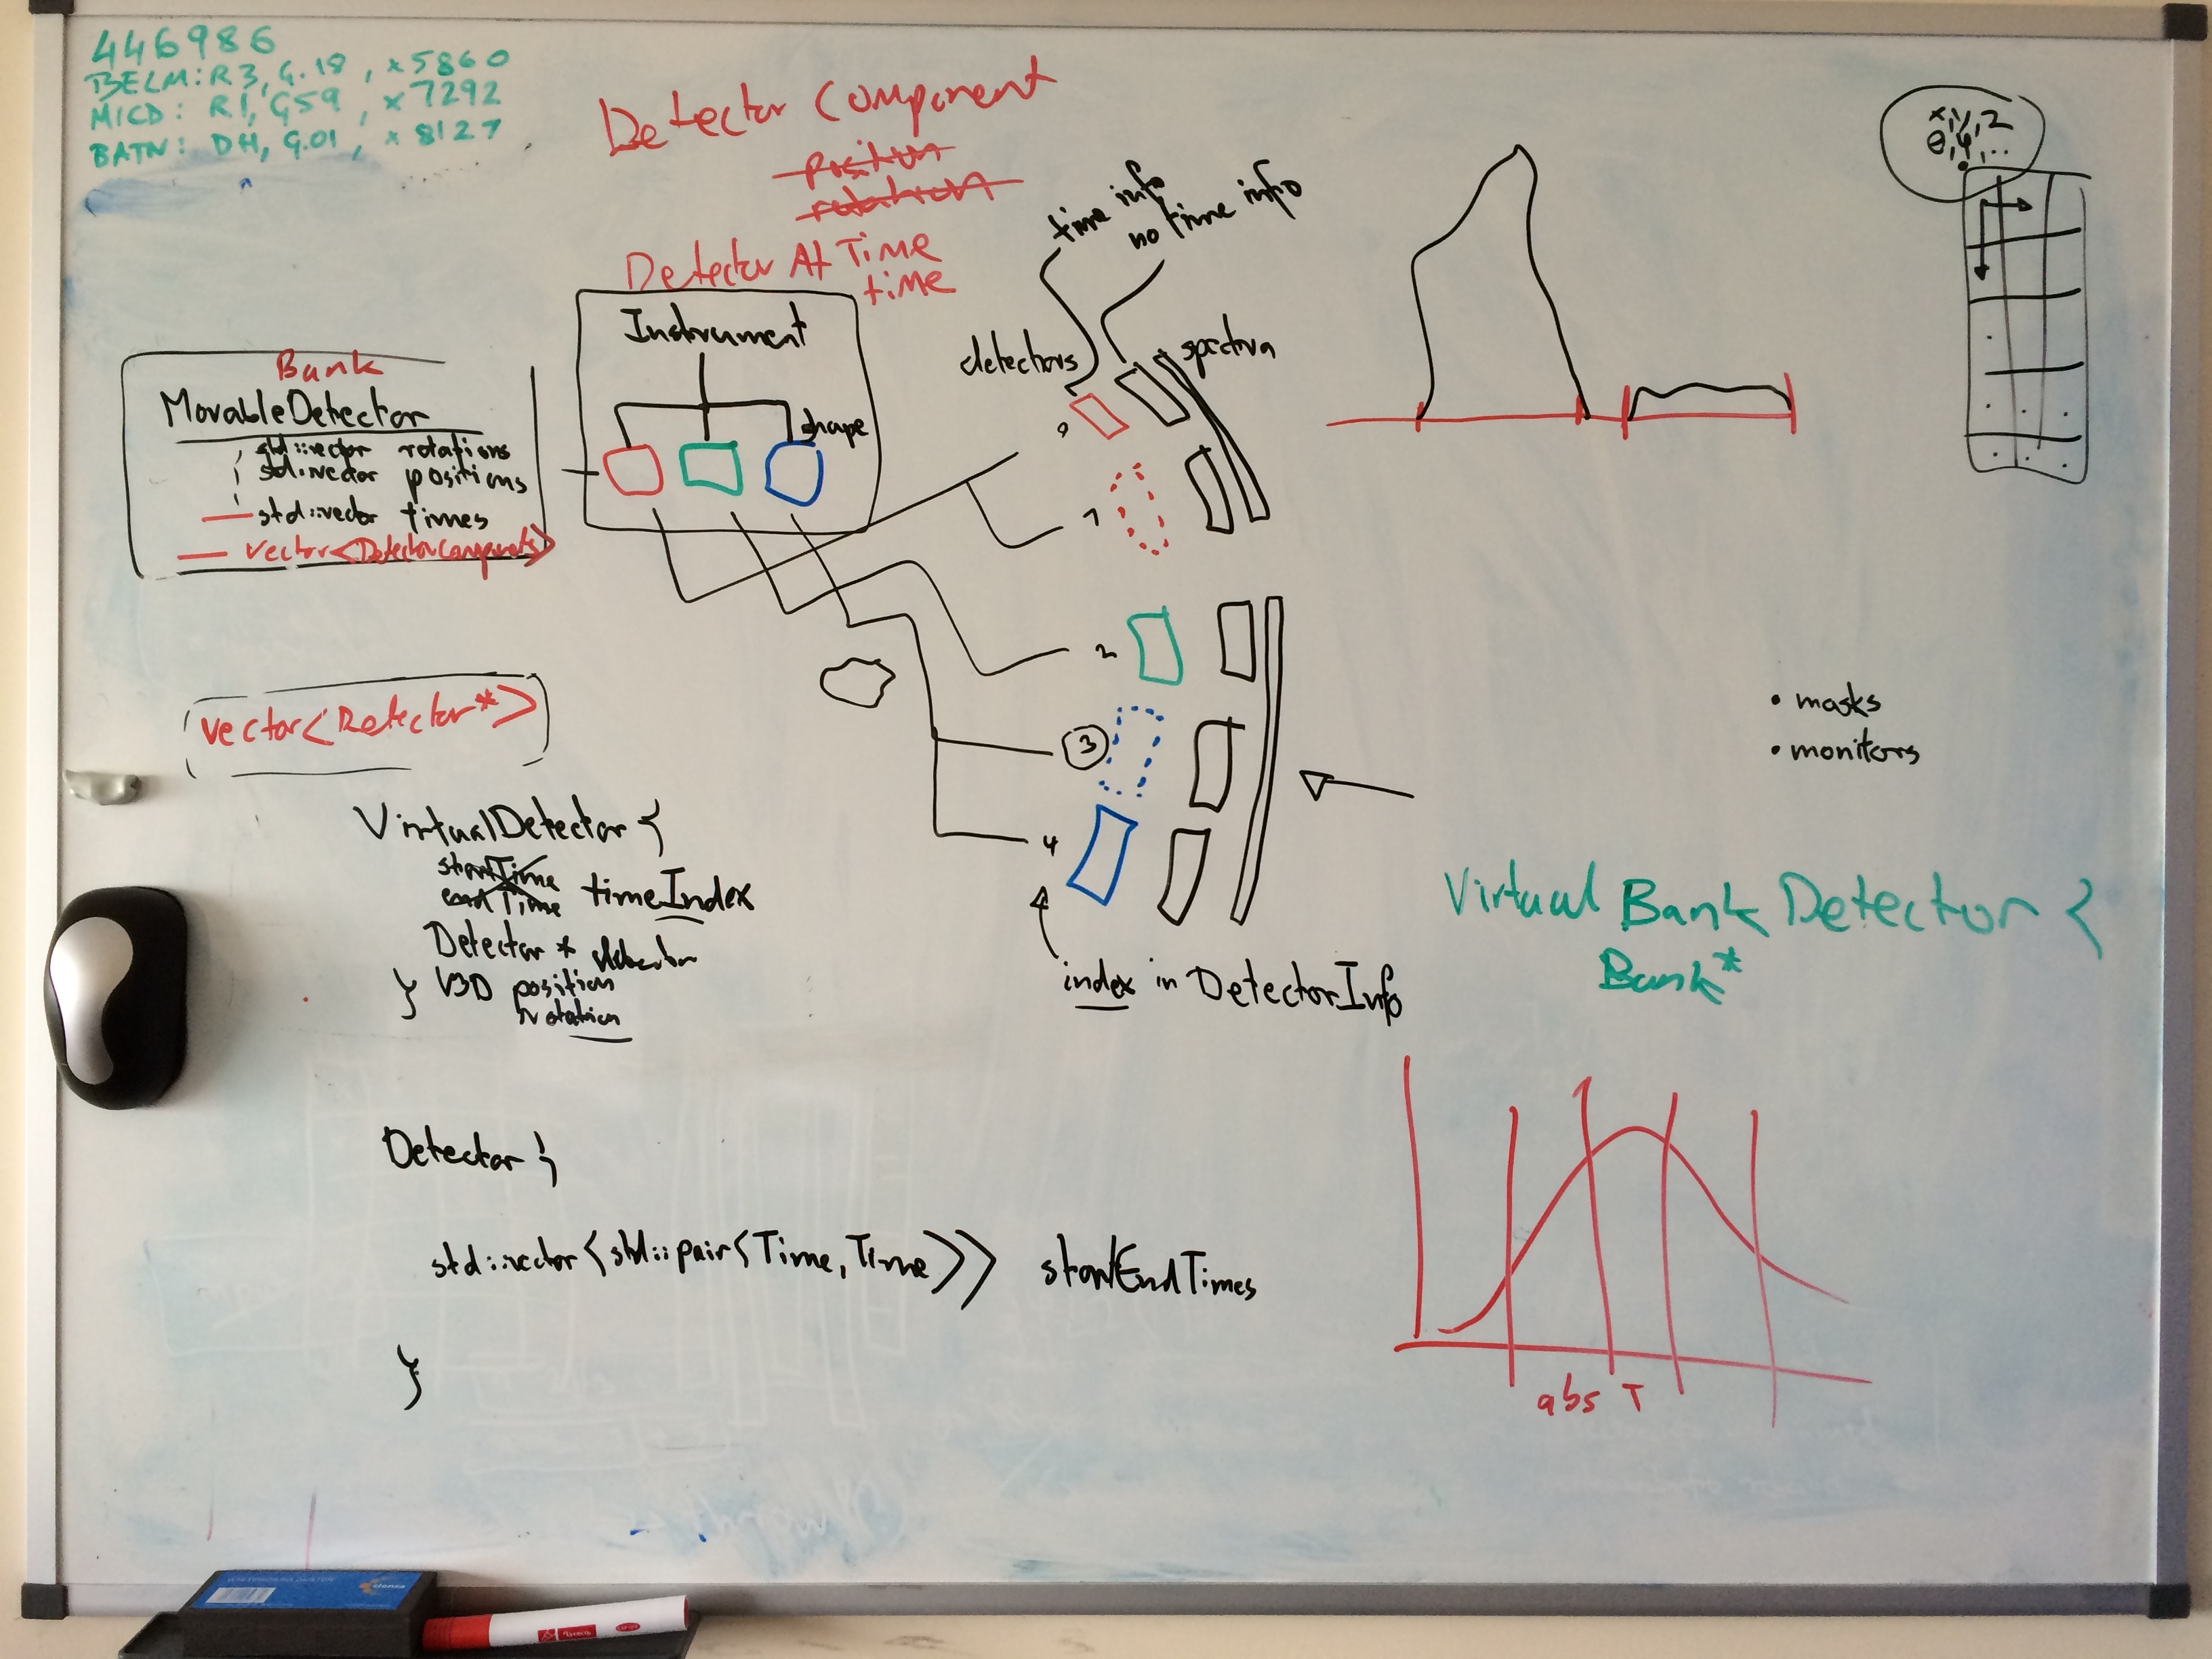 446986
BELM: R3, G.18, x5860
MICD: R1, G59, x7292
BATN: DH, G.01, x8127
Detector Component
position
rotation
Detector At Time
time
time info
no time info
x,y,z
θ,φ,...
Instrument
shape
detectors
spectra
Bank
MovableDetector
std::vector rotations
std::vector positions
std::vector times
vector<DetectorComponents>
0
1
2
3
4
index in DetectorInfo
vector<Detector*>
• masks
• monitors
VirtualDetector {
startTime
endTime timeIndex
Detector * detector
} V3D position
rotation
Virtual Bank Detector {
Bank*
Detector {
std::vector<std::pair<Time, Time>> startEndTimes
}
abs T